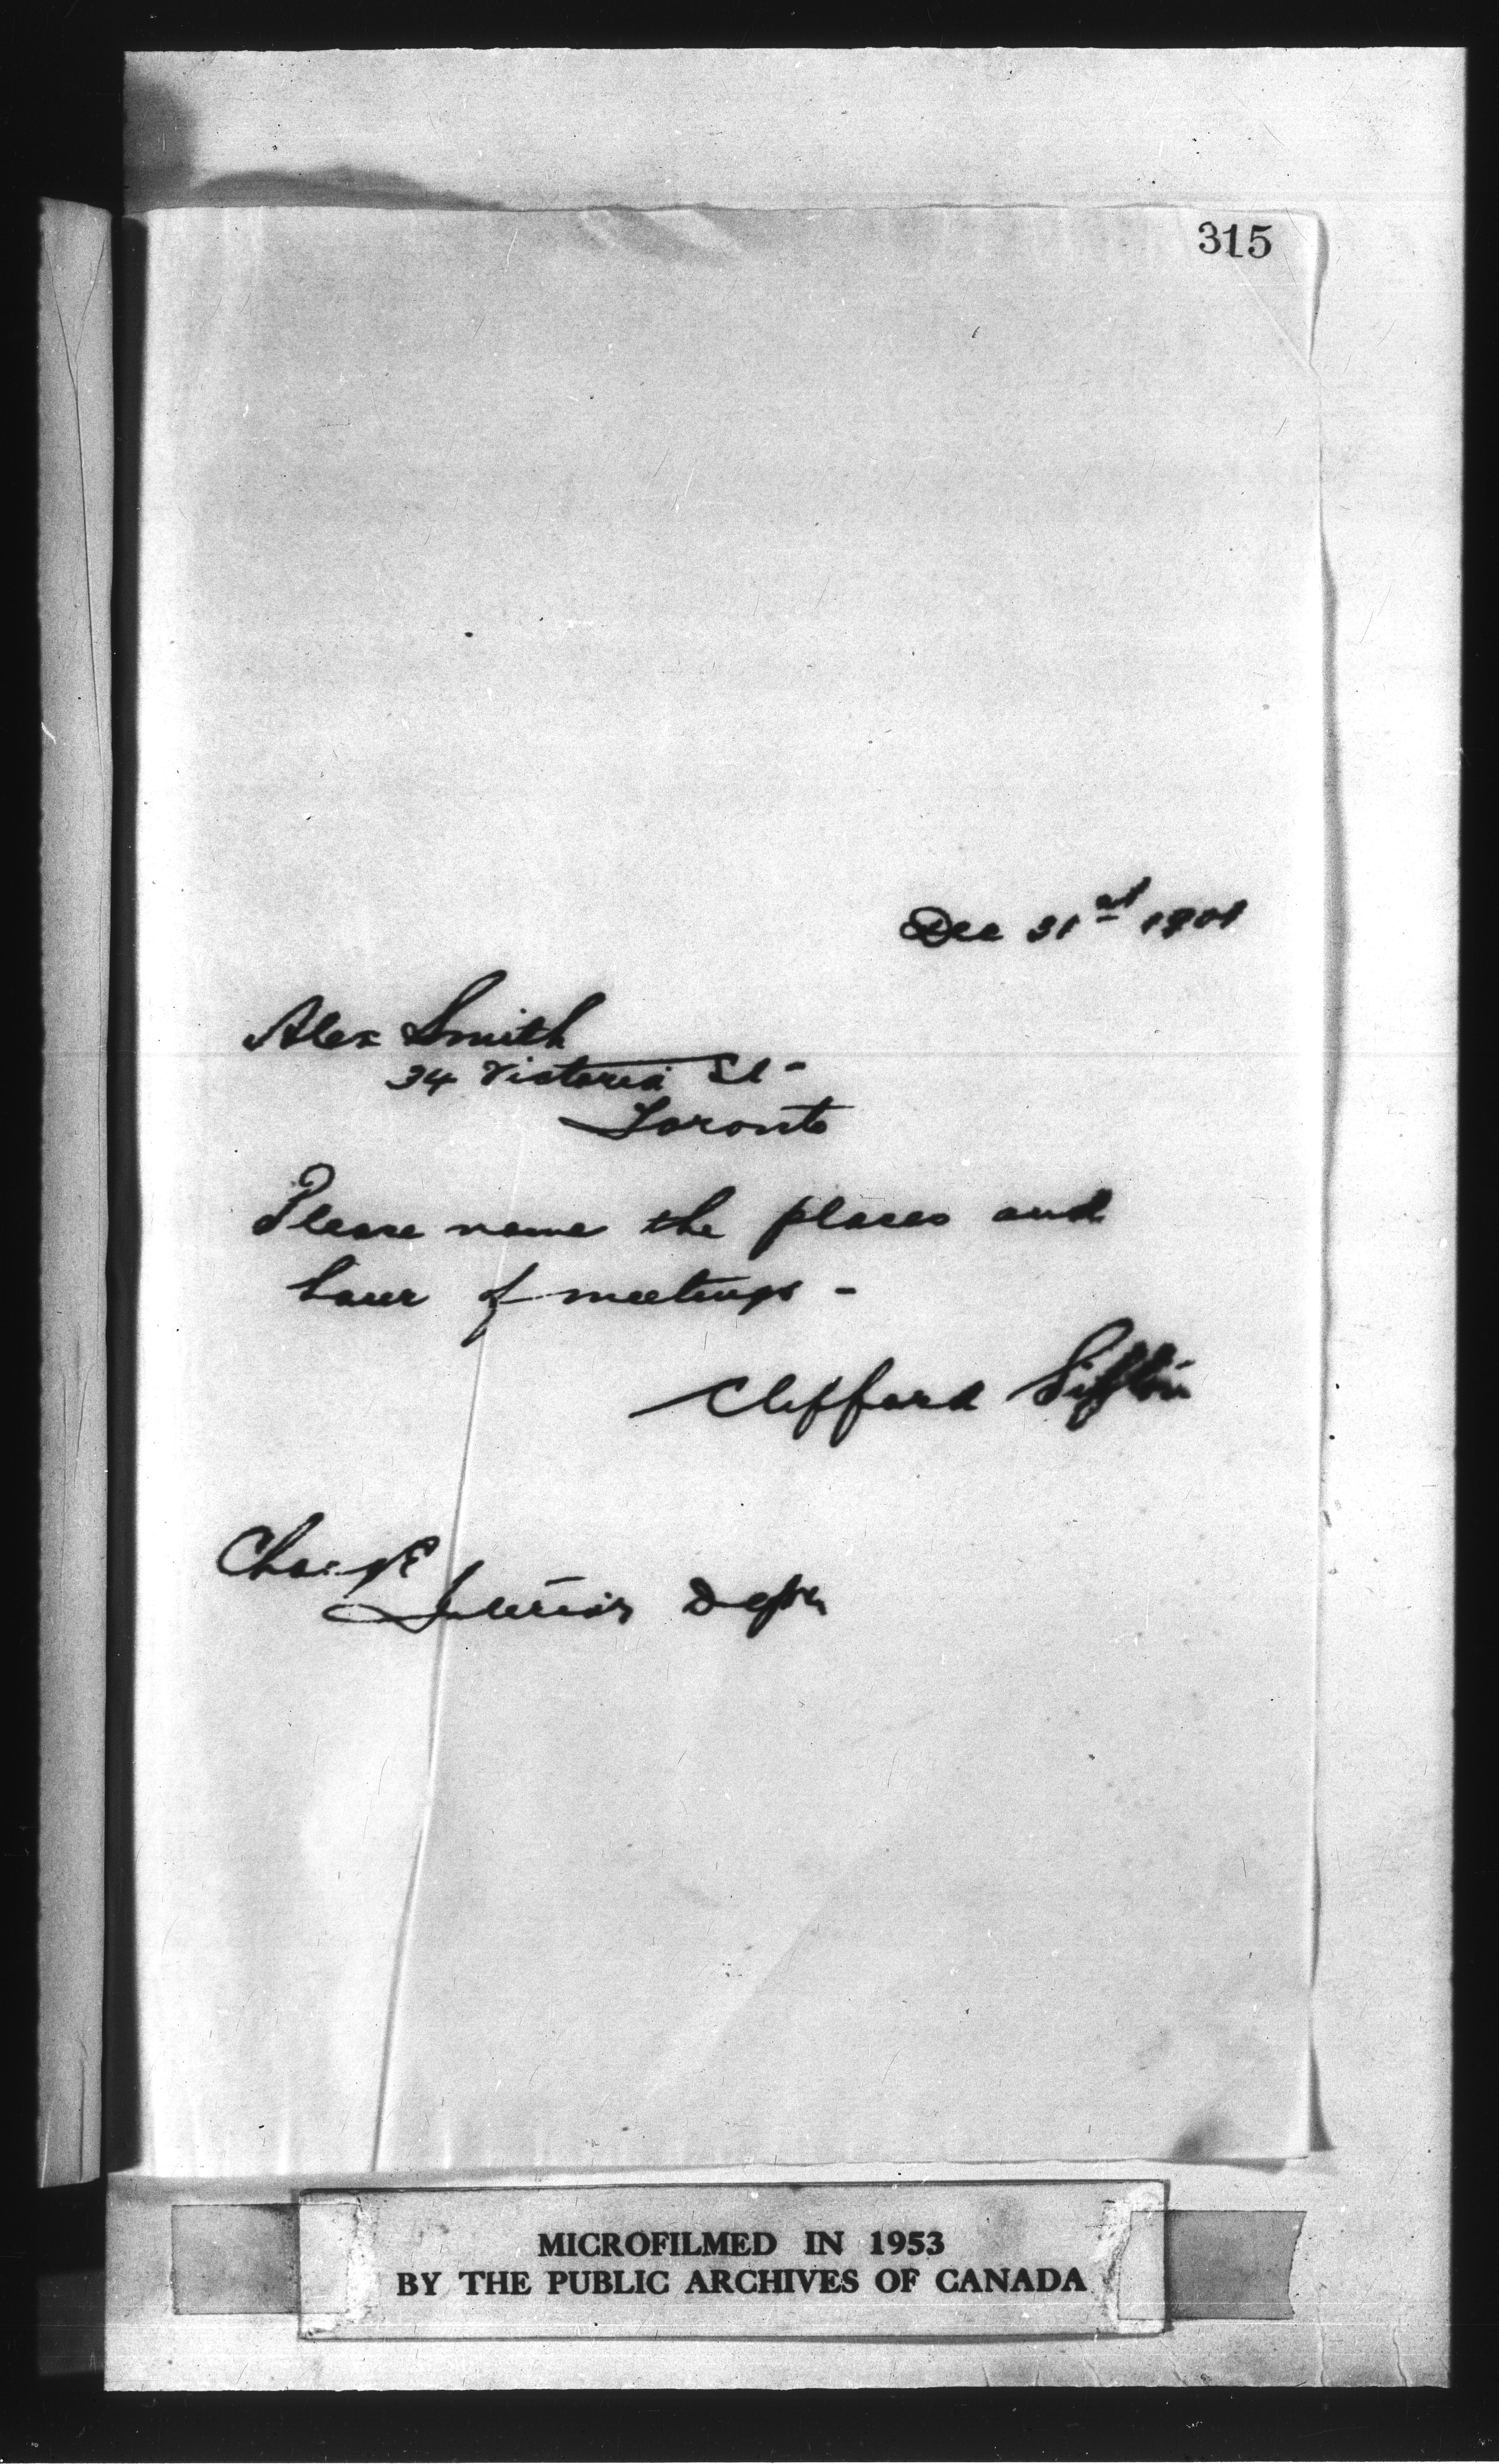 315
Dec 31st 1901
Alex Smith
34 Victoria St -
Toronto
Please name the places and
hour of meetings -
Clifford Sifton
Charge
Interior Dept
MICROFILMED IN 1953
BY THE PUBLIC ARCHIVES OF CANADA